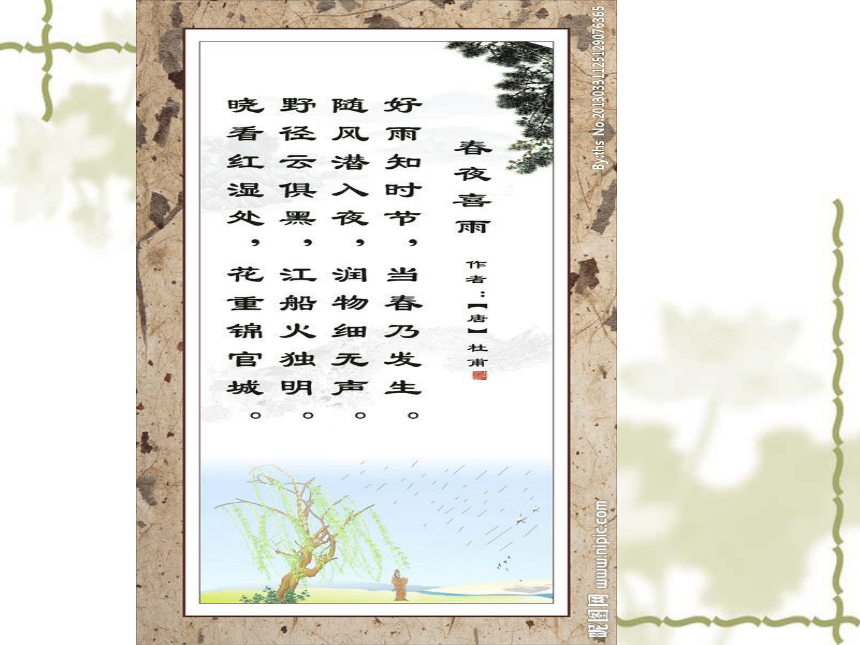 春夜喜雨
作者：【唐】杜甫
好雨知时节，当春乃发生。
随风潜入夜，润物细无声。
野径云俱黑，江船火独明。
晓看红湿处，花重锦官城。
By:ths No.20130331125129076365
昵图网 www.nipic.com